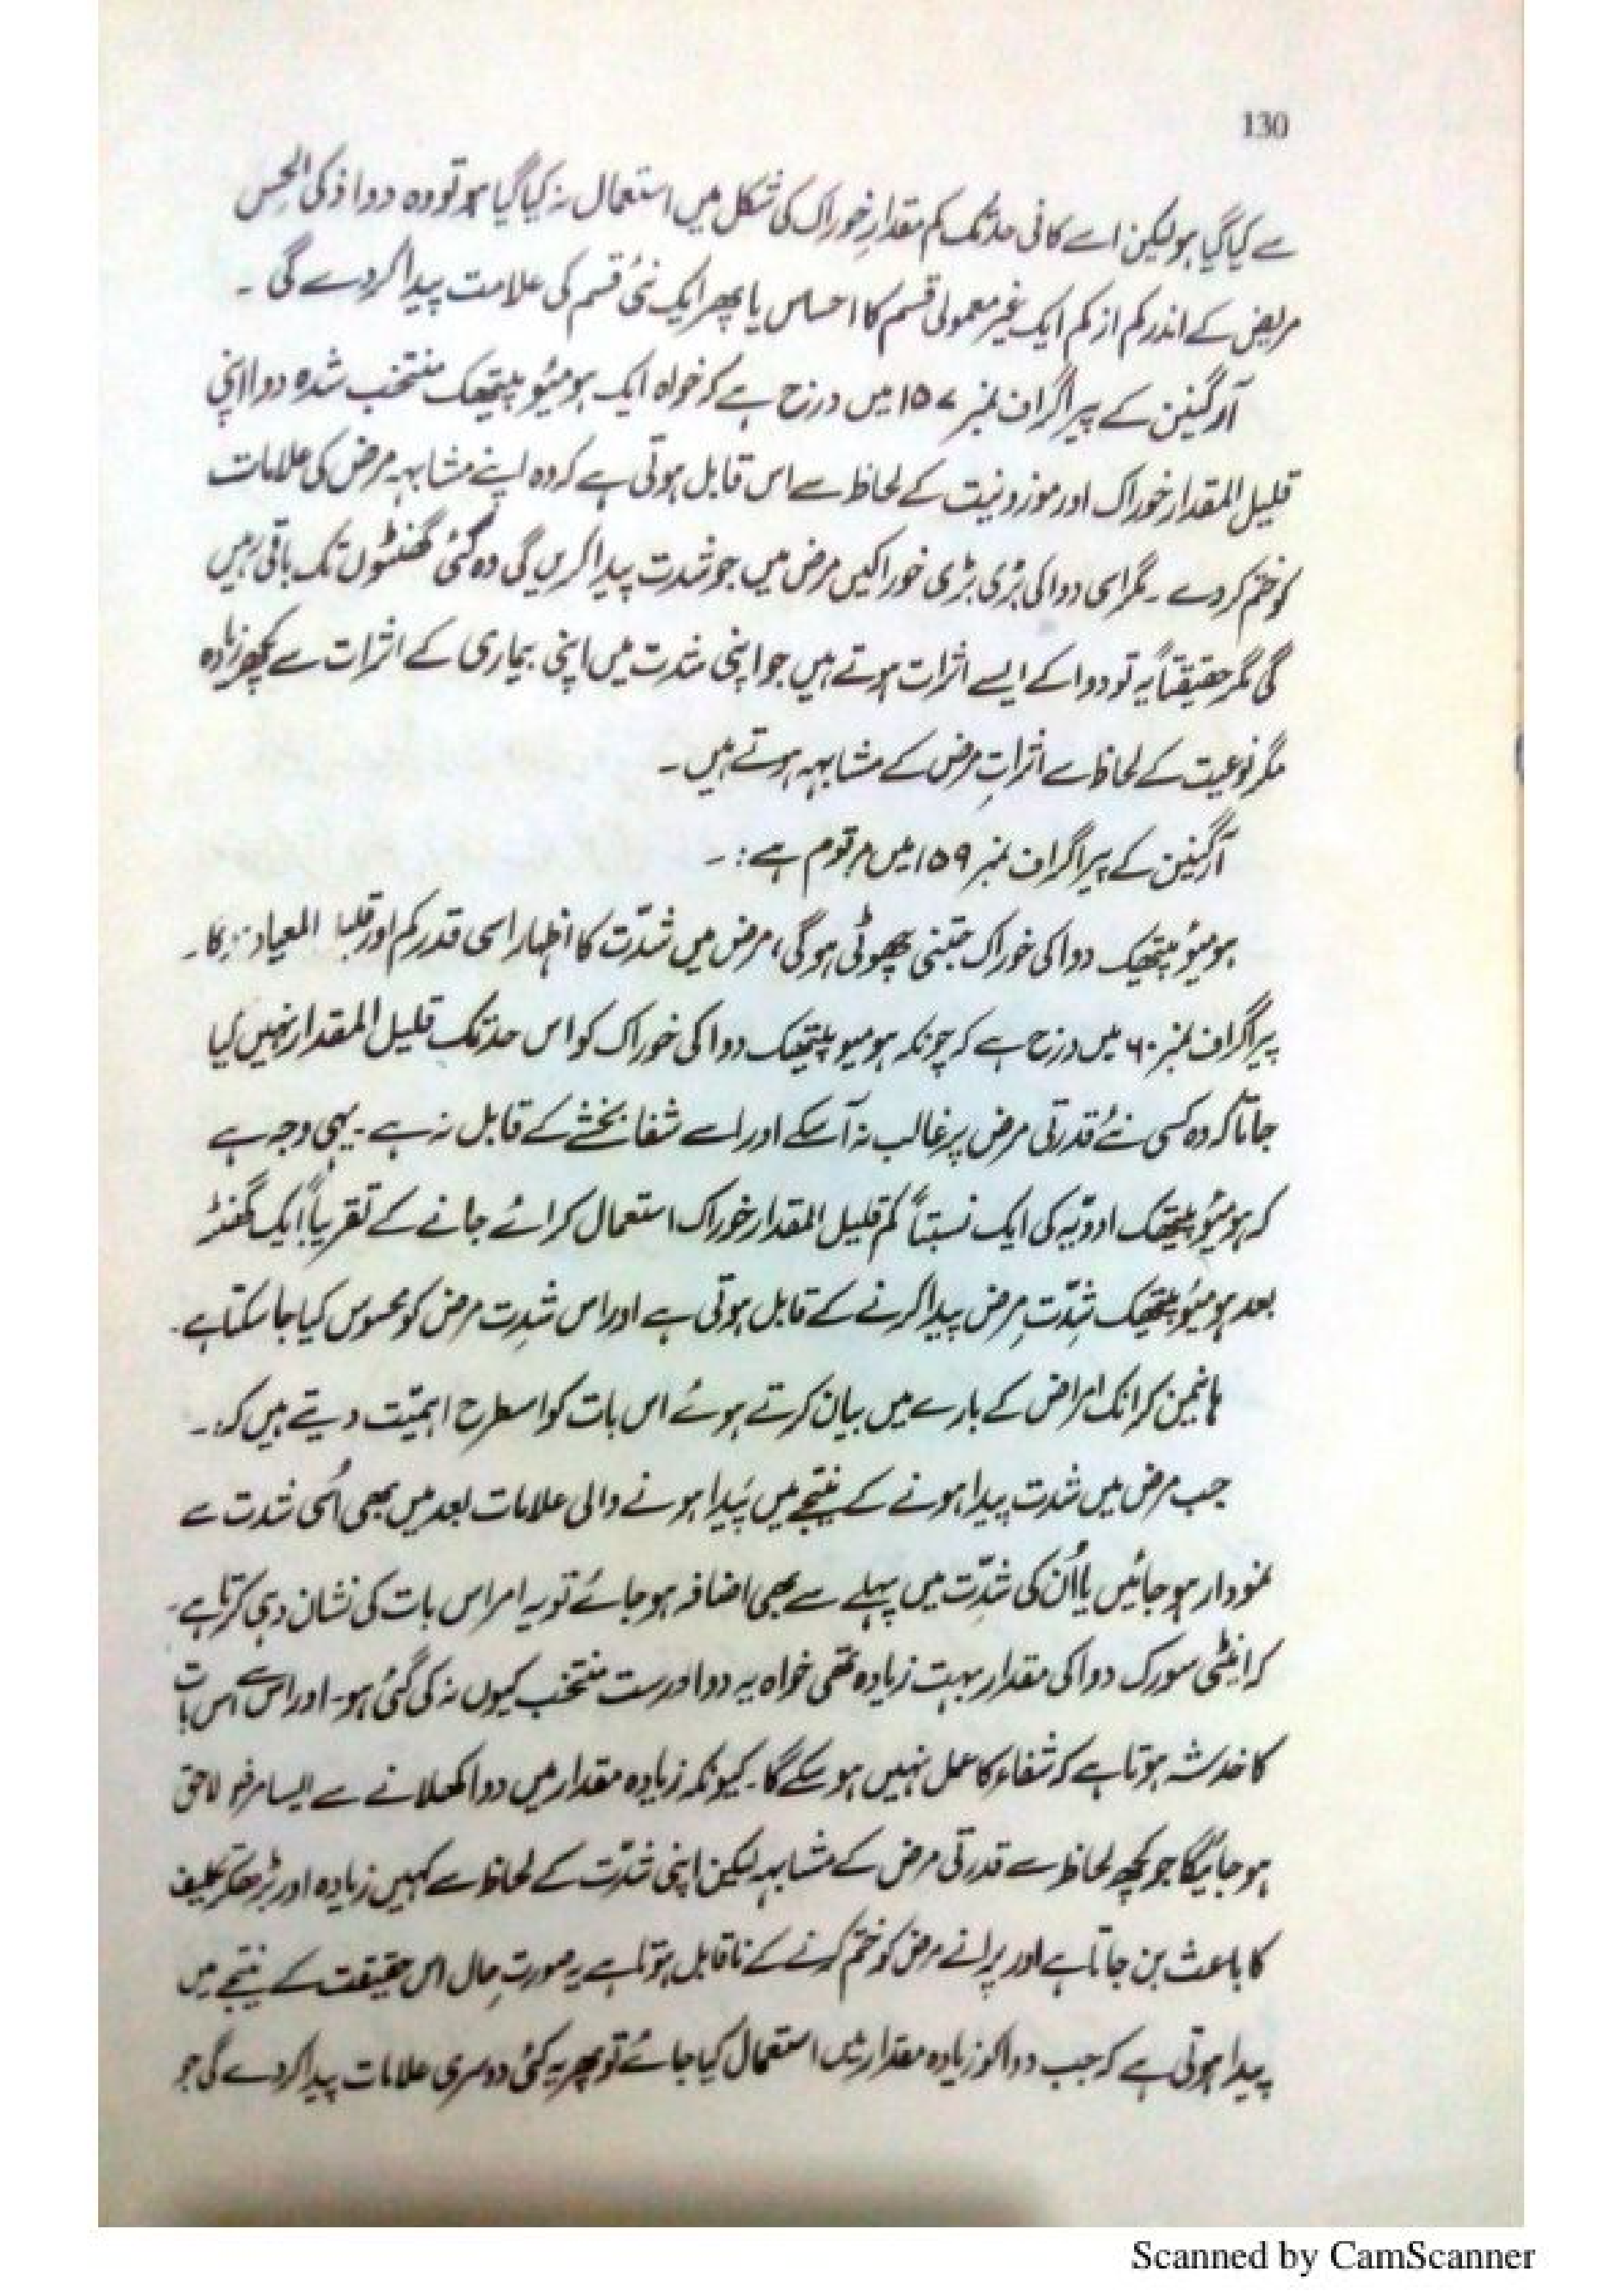 130
سے کیا گیا ہو لیکن اسے کافی حد تک کم مقدارِ خوراک کی شکل میں استعمال نہ کیا گیا ہو تو وہ دوا ذکی الحِس
مریض کے اندر کم از کم ایک غیر معمولی قسم کا احساس یا پھر ایک نئی قسم کی علامت پیدا کر دے گی ۔
آرگینن کے پیراگراف نمبر ۱۵۷ میں درج ہے کہ خواہ ایک ہومیئوپیتھک منتخب شدہ دوا اپنی
قلیل المقدار خوراک اور موزونیت کے لحاظ سے اس قابل ہوتی ہے کہ وہ اپنے مشابہہ مرض کی علامات
کو ختم کر دے ۔ مگر اسی دوا کی بڑی بڑی خوراکیں مرض میں جو شدت پیدا کریں گی وہ کئی گھنٹوں تک باقی رہیں
گی مگر حقیقتاً یہ تو دوا کے ایسے اثرات ہوتے ہیں جو اپنی شدت میں اپنی بیماری کے اثرات سے کچھ زیادہ
مگر نوعیت کے لحاظ سے اثراتِ مرض کے مشابہہ ہوتے ہیں ۔
آرگینن کے پیراگراف نمبر ۱۵۹ میں مرقوم ہے :۔
ہومیئوپیتھک دوا کی خوراک جتنی چھوٹی ہو گی، مرض میں شدّت کا اظہار اسی قدر کم اور المعیاد
پیراگراف نمبر ۶۰ میں درج ہے کہ چونکہ ہومیوپیتھک دوا کی خوراک کو اس حد تک قلیل المقدار نہیں کیا
جاتا کہ وہ کسی نئے قدرتی مرض پر غالب نہ آ سکے اور اسے شفا بخشنے کے قابل نہ ہے ۔ یہی وجہ ہے
کہ ہومیئوپیتھک ادویّہ کی ایک نسبتاً کم قلیل المقدار خوراک استعمال کرائے جانے کے تقریباً ایک گھنٹہ
بعد ہومیئوپیتھک شدّتِ مرض پیدا کرنے کے قابل ہوتی ہے اور اس شدتِ مرض کو محسوس کیا جا سکتا ہے ۔
ہانیمن کرانک امراض کے بارے میں بیان کرتے ہوئے اس بات کو اسطرح اہمیّت دیتے ہیں کہ :۔
جب مرض میں شدت پیدا ہونے کے نتیجے میں پیدا ہونے والی علامات بعد میں بھی اُسی شدت سے
نمودار ہو جائیں یا اُن کی شدّت میں پہلے سے بھی اضافہ ہو جائے تو یہ امر اس بات کی نشان دہی کرتا ہے ۔
کہ اینٹی سورک دوا کی مقدار بہت زیادہ تھی خواہ یہ دوا درست منتخب کیوں نہ کی گئی ہو ۔ اور اس سے اس بات
کا خدشہ ہوتا ہے کہ شفاء کا عمل نہیں ہو سکے گا ۔ کیونکہ زیادہ مقدار میں دوا کھلانے سے ایسا مرض لاحق
ہو جائیگا جو کچھ لحاظ سے قدرتی مرض کے مشابہہ لیکن اپنی شدّت کے لحاظ سے کہیں زیادہ اور بڑھکر تکلیف
کا باعث بن جاتا ہے اور پرانے مرض کو ختم کرنے کے ناقابل ہوتا ہے یہ صورتِ حال اس حقیقت کے نتیجے میں
پیدا ہوتی ہے کہ جب دوا کو زیادہ مقدار میں استعمال کیا جائے تو پھر یہ کئی دوسری علامات پیدا کر دے گی جو
Scanned by CamScanner